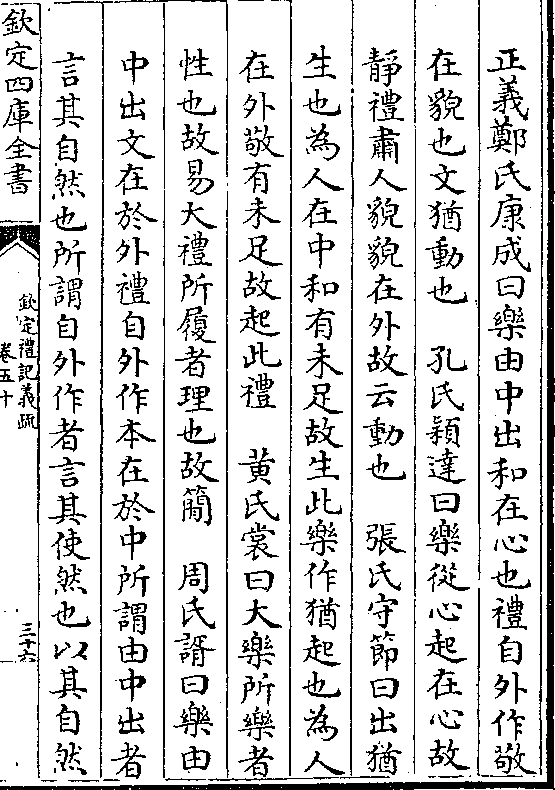 正義鄭氏康成曰樂由中出和在心也禮自外作敬
在貌也文猶動也　孔氏穎達曰樂從心起在心故
靜禮肅人貌貌在外故云動也　張氏守節曰出猶
生也為人在中和有未足故生此樂作猶起也為人
在外敬有未足故起此禮　黃氏裳曰大樂所樂者
性也故易大禮所履者理也故簡　周氏諝曰樂由
中出文在於外禮自外作本在於中所謂由中出者
言其自然也所謂自外作者言其使然也以其自然
欽定四庫全書
欽定禮記義疏
卷五十
三十六